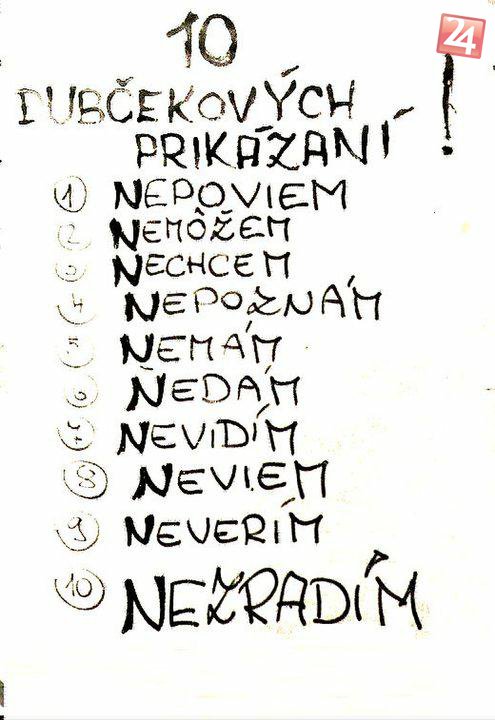 24
10
DUBČEKOVÝCH
PRIKÁZANÍ!
1 NEPOVIEM
2 NEMÔŽEM
3 NECHCEM
4 NEPOZNÁM
5 NEMÁM
6 NEDÁM
7 NEVIDÍM
8 NEVIEM
9 NEVERÍM
10 NEZRADÍM